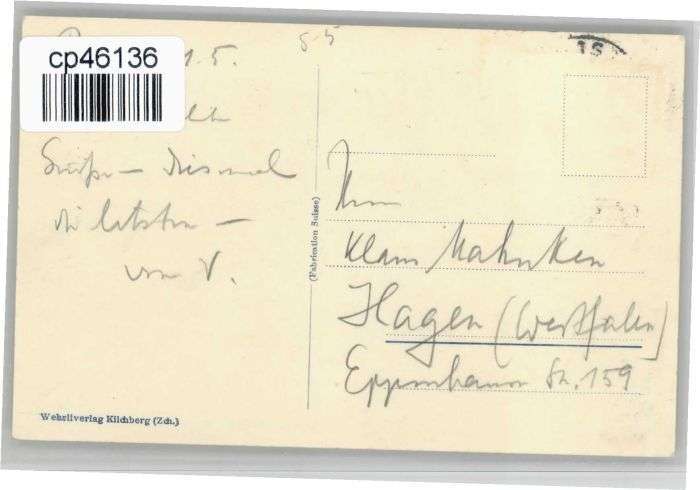 cp46136
1.5.
Grüße — diesmal
die letzten —
von V.
(Fabrication Suisse)
Herrn
Klaus Mahnken
Hagen (Westfalen)
Eppenhauser Str. 159
Wehrliverlag Kilchberg (Zch.)